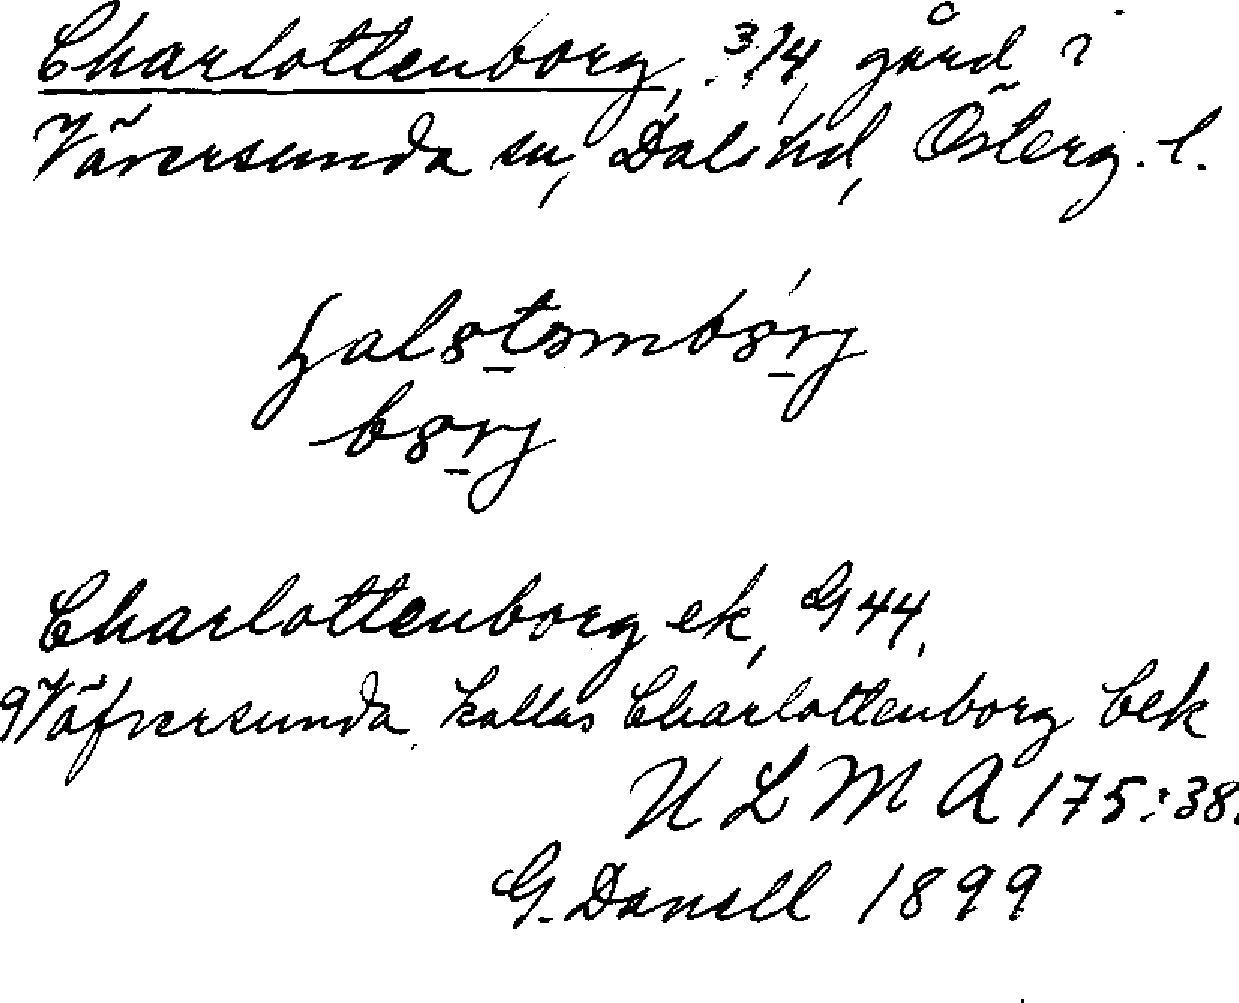 Charlottenborg, 3/4, gård i
Väversunda sn, Dals hd, Österg. l.
bɞrj
Charlottenborg ek, G 44,
Väfversunda, kallas Charlottenborg bek
U L M A 175:38.
G. Danell 1899